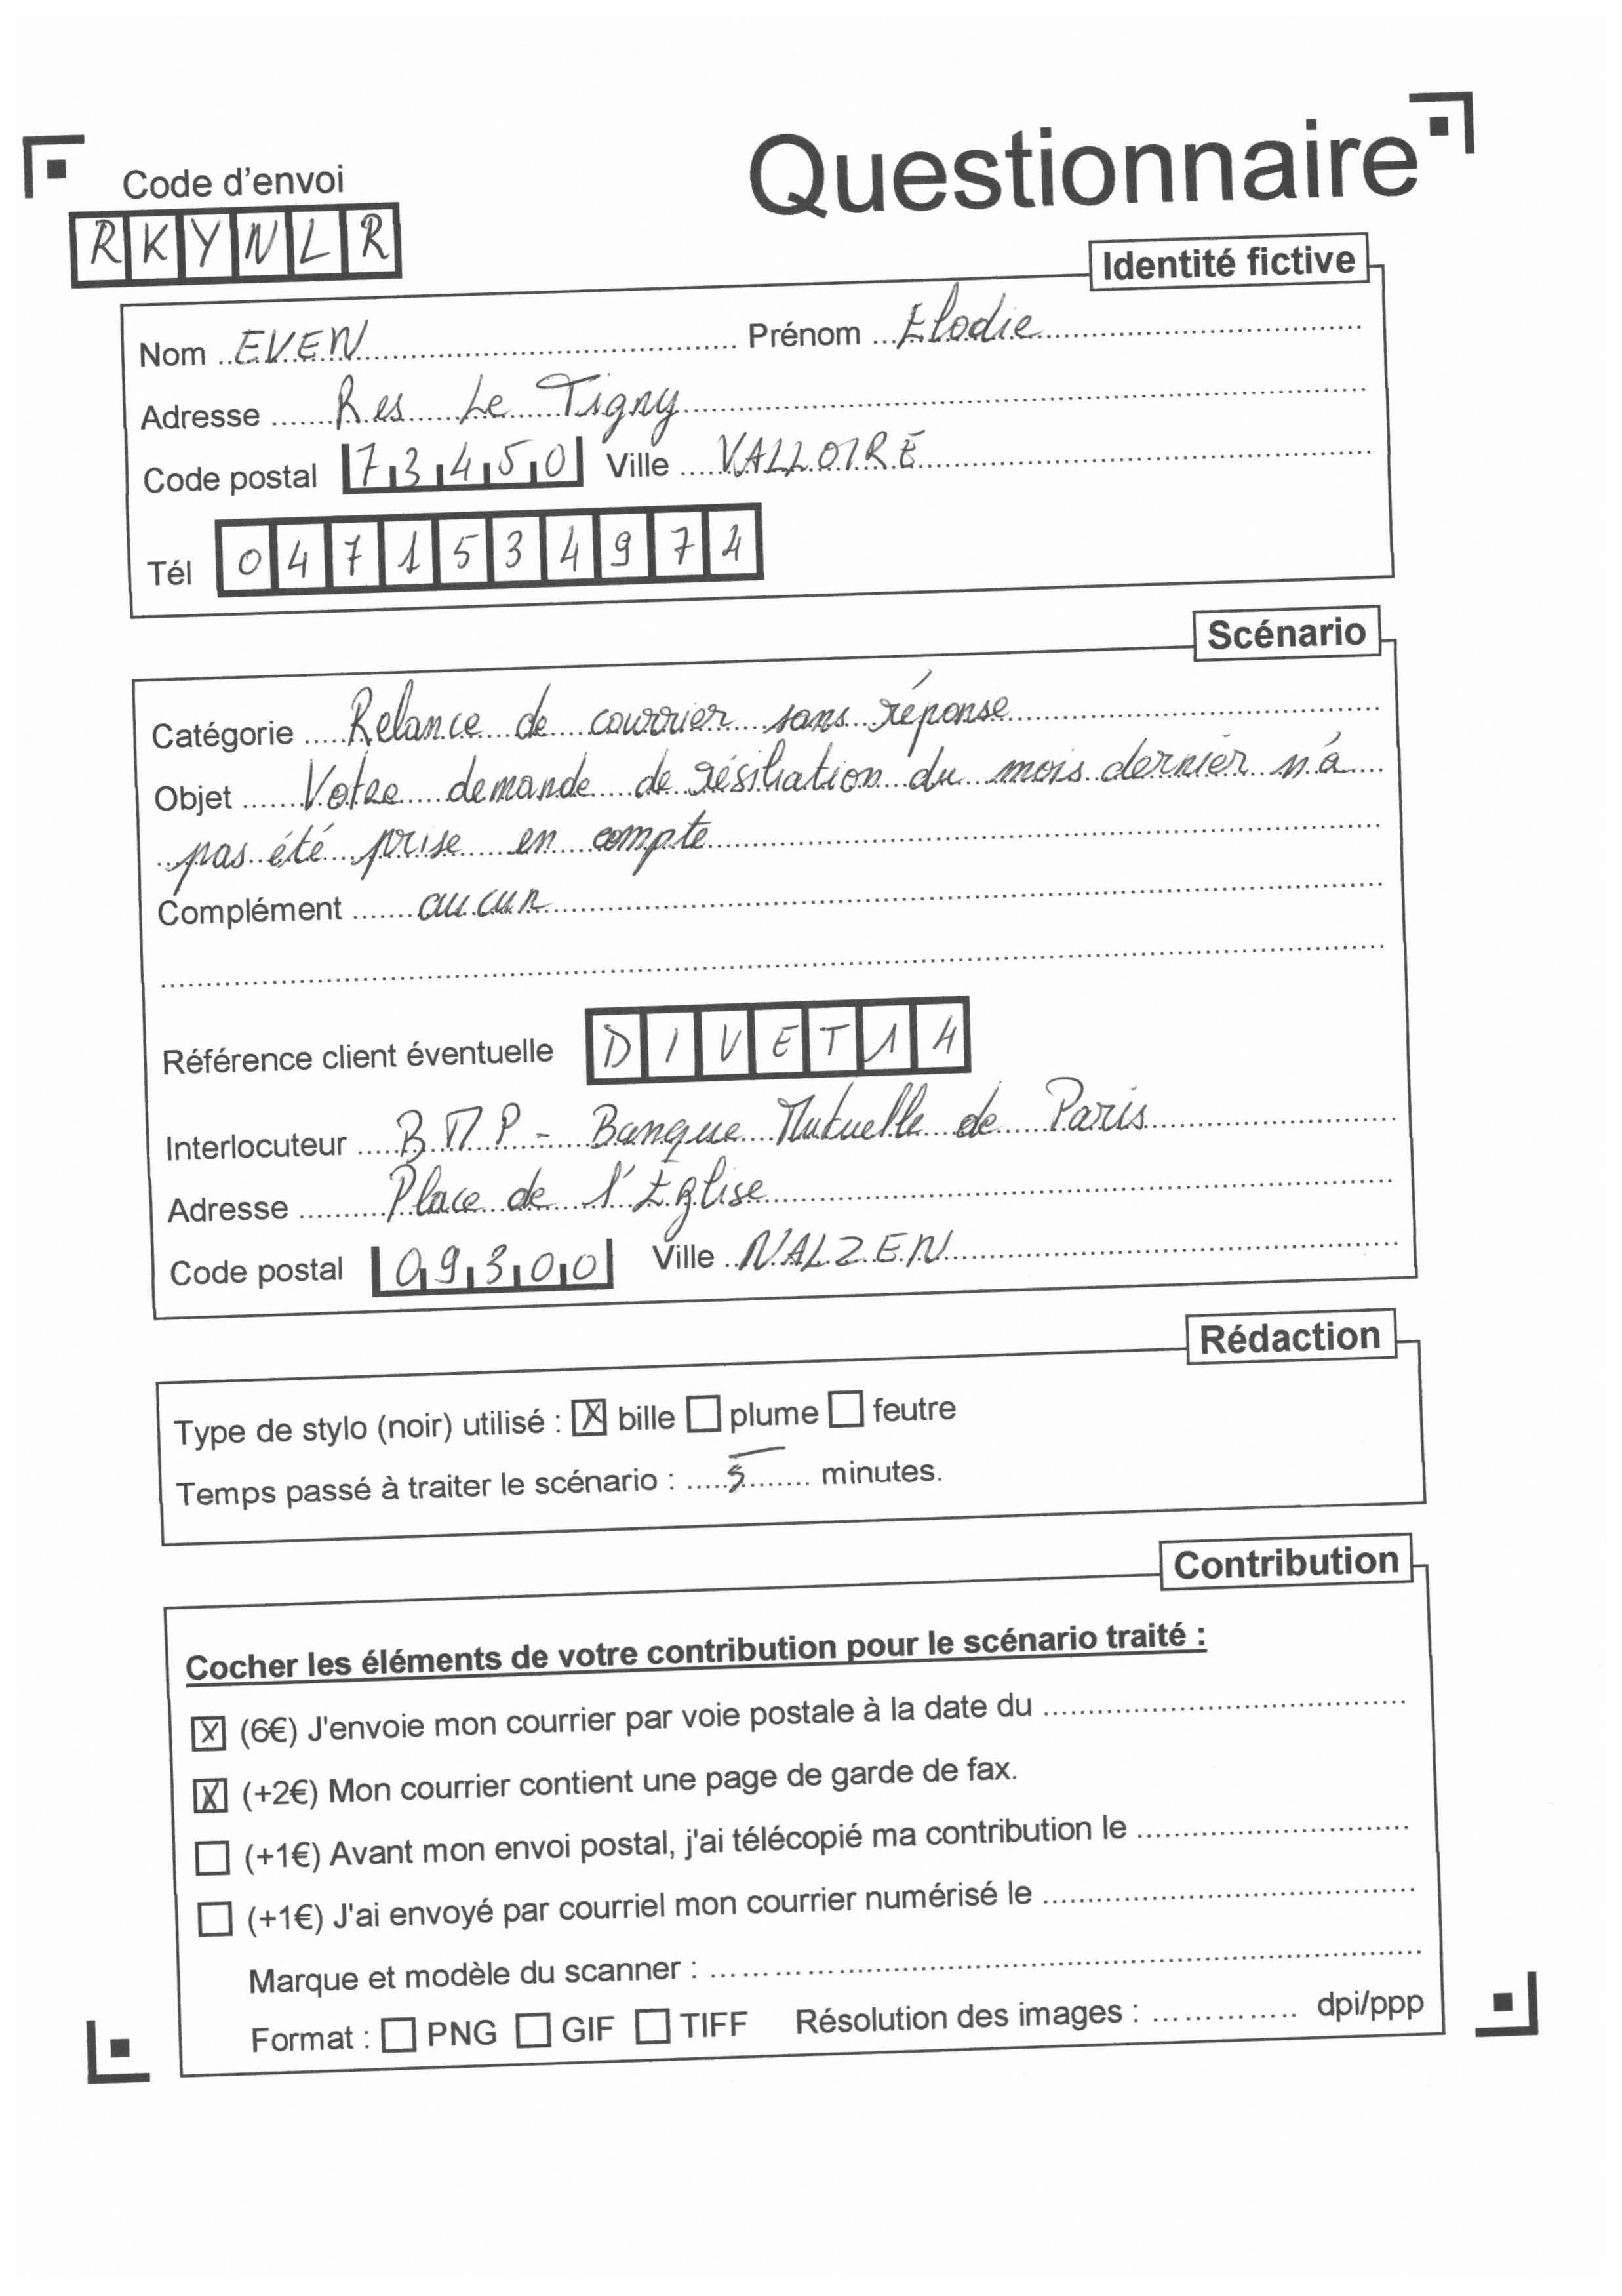 Questionnaire
Code d'envoi
RKYNLR
Identité fictive
Nom EVEN Prénom Elodie
Adresse Res Le Tigny
Code postal 73450 Ville VALLOIRE
Tél 0471534974
Scénario
Catégorie Relance de courrier sans réponse
Objet Votre demande de résiliation du mois dernier n'a
pas été prise en compte
Complément aucun
Référence client éventuelle DIVET14
Interlocuteur BMP - Banque Mutuelle de Paris
Adresse Place de l'Eglise
Code postal 09300 Ville NALZEN
Rédaction
Type de stylo (noir) utilisé : X bille plume feutre
Temps passé à traiter le scénario : 5 minutes.
Contribution
Cocher les éléments de votre contribution pour le scénario traité :
X (6€) J'envoie mon courrier par voie postale à la date du
X (+2€) Mon courrier contient une page de garde de fax.
(+1€) Avant mon envoi postal, j'ai télécopié ma contribution le
(+1€) J'ai envoyé par courriel mon courrier numérisé le
Marque et modèle du scanner :
Format : PNG GIF TIFF Résolution des images : dpi/ppp